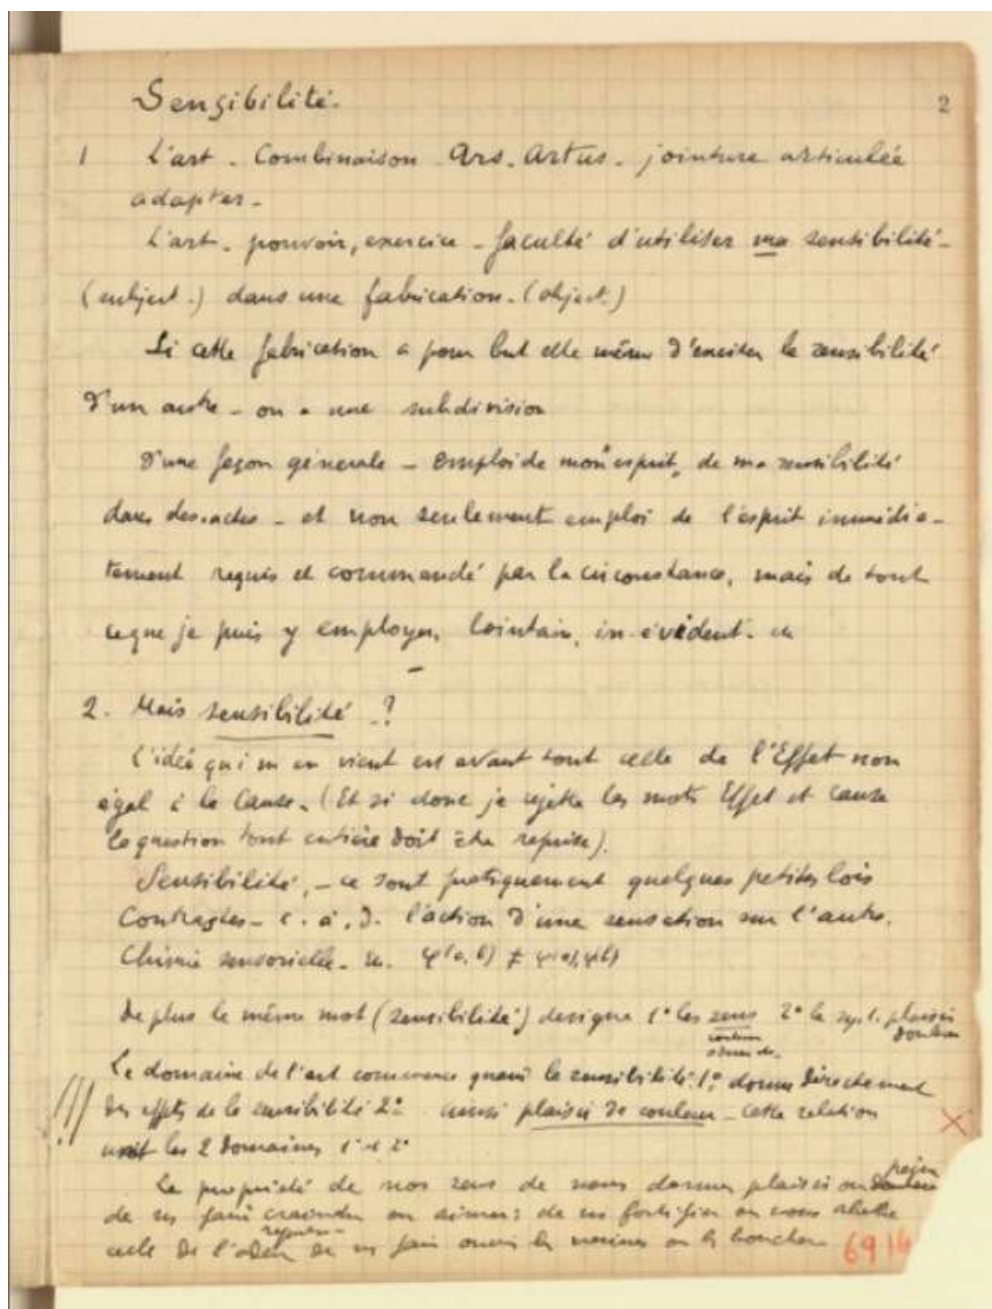 Sensibilité.
2
1 L'art. Combinaison. Ars. Artus. jointure articulée
adapter.
L'art. pouvoir, exercice – faculté d'utiliser ma sensibilité
(subject.) dans une fabrication. (object.)
Si cette fabrication a pour but elle même d'exciter la sensibilité
d'un autre – on a une subdivision
D'une façon générale – emploi de mon esprit, de ma sensibilité
dans des actes – et non seulement emploi de l'esprit immédia-
tement requis et commandé par la circonstance, mais de tout
ce que je puis y employer, lointain, in-évident.
2. Mais sensibilité ?
L'idée qui m'en vient est avant tout celle de l'Effet non
égal à la Cause. (Et si donc je rejette les mots Effet et cause
la question tout entière doit être reprise).
Sensibilité, – ce sont pratiquement quelques petites lois
Contrastes – c. à. d. l'action d'une sensation sur l'autre.
Chimie sensorielle. φ(a,b) ≠ φ(a),φ(b)
De plus le même mot (sensibilité) désigne 1° les sens 2° le syst. plaisir
douleur
Le domaine de l'art commence quand la sensibilité 1° donne directement
des effets de la sensibilité 2° ainsi plaisir de couleur – cette relation
unit les 2 domaines 1° et 2°
La propriété de nos sens de nous donner plaisir ou
de ns faire craindre ou aimer; de ns fortifier ou nous
celle de l'odeur de ns faire ouvrir les narines ou la bouche
69 14